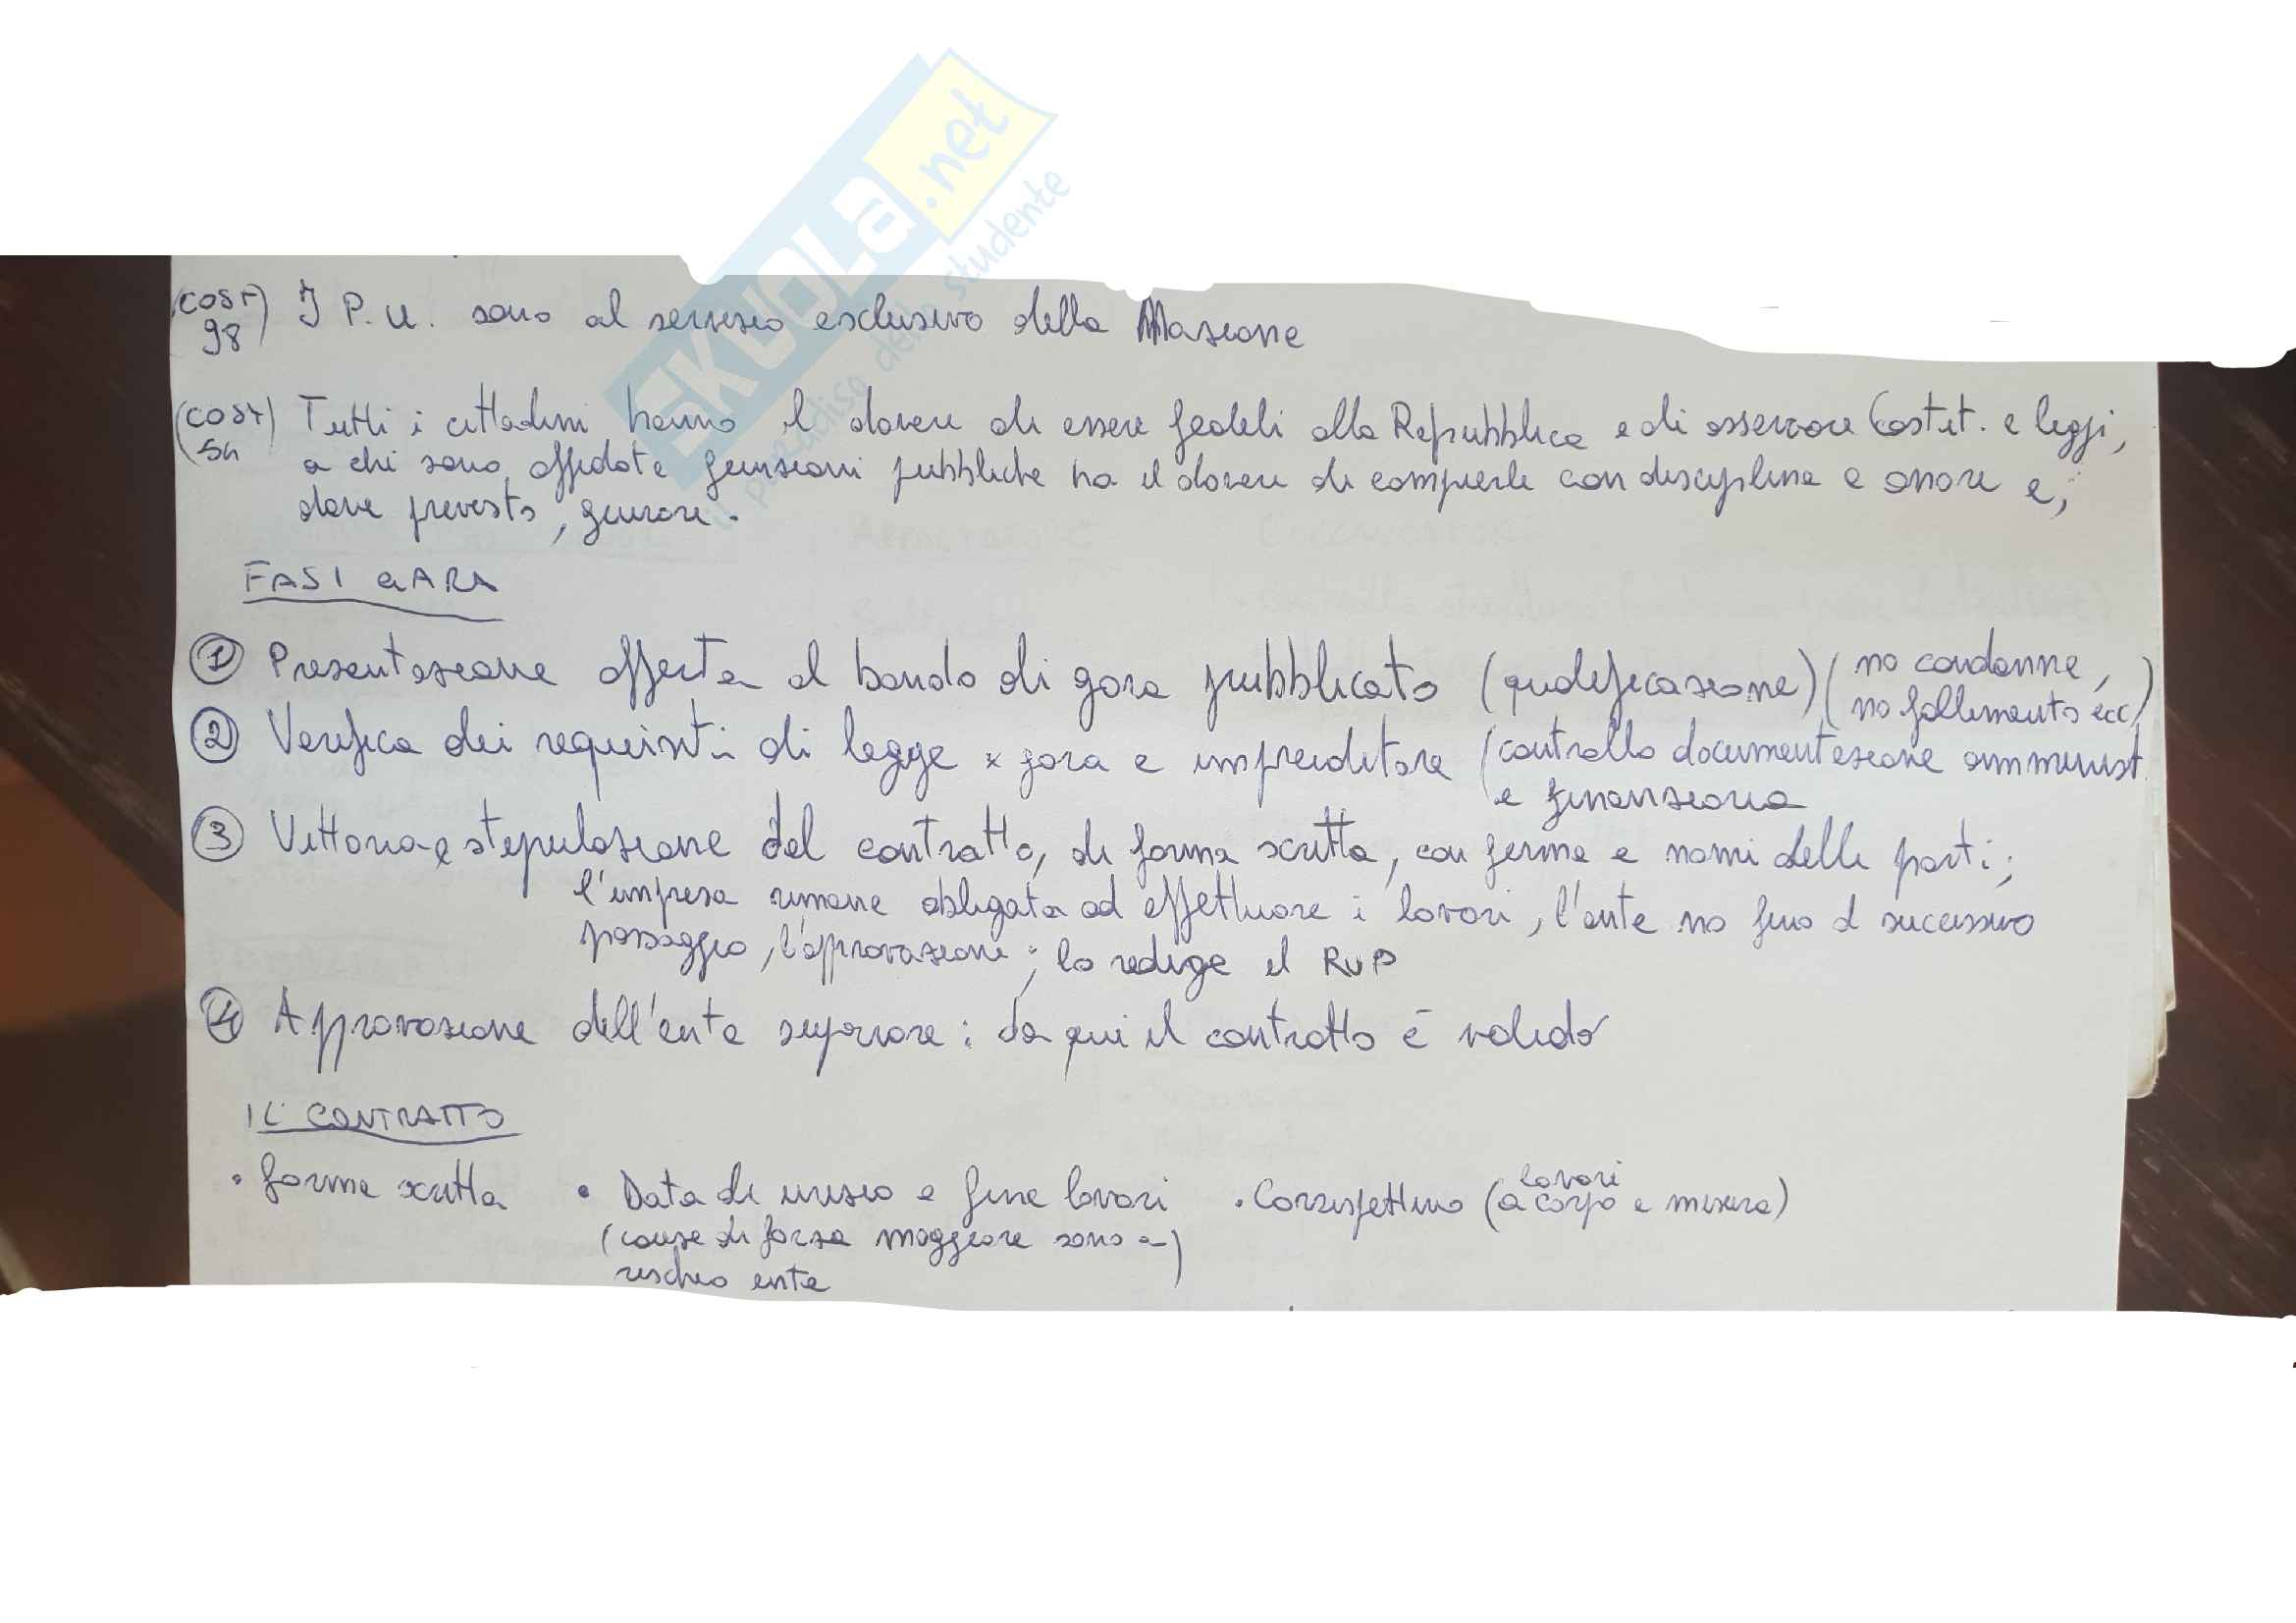 SKUOLA.net
il paradiso dello studente
(COST) I P.U. sono al servizio esclusivo della Nazione
98
(COST) Tutti i cittadini hanno il dovere di essere fedeli alla Repubblica e di osservare Costit. e leggi,
54 a chi sono affidate funzioni pubbliche ha il dovere di compierle con disciplina e onore e,
dove previsto, giurare.
FASI GARA
① Presentazione offerta al bando di gara pubblicato (qualificazione) (no condanne,
no fallimento ecc)
② Verifica dei requisiti di legge x gara e imprenditore (controllo documentazione amminist.
e finanziaria
③ Vittoria e stipulazione del contratto, di forma scritta, con firma e nomi delle parti;
l'impresa rimane obbligata ad effettuare i lavori, l'ente no fino al successivo
passaggio, l'approvazione; lo redige il RUP
④ Approvazione dell'ente superiore: da qui il contratto è valido
IL CONTRATTO
• forma scritta • Data di inizio e fine lavori • Corrispettivo (lavori a corpo e misura)
(cause di forza maggiore sono a
rischio ente)